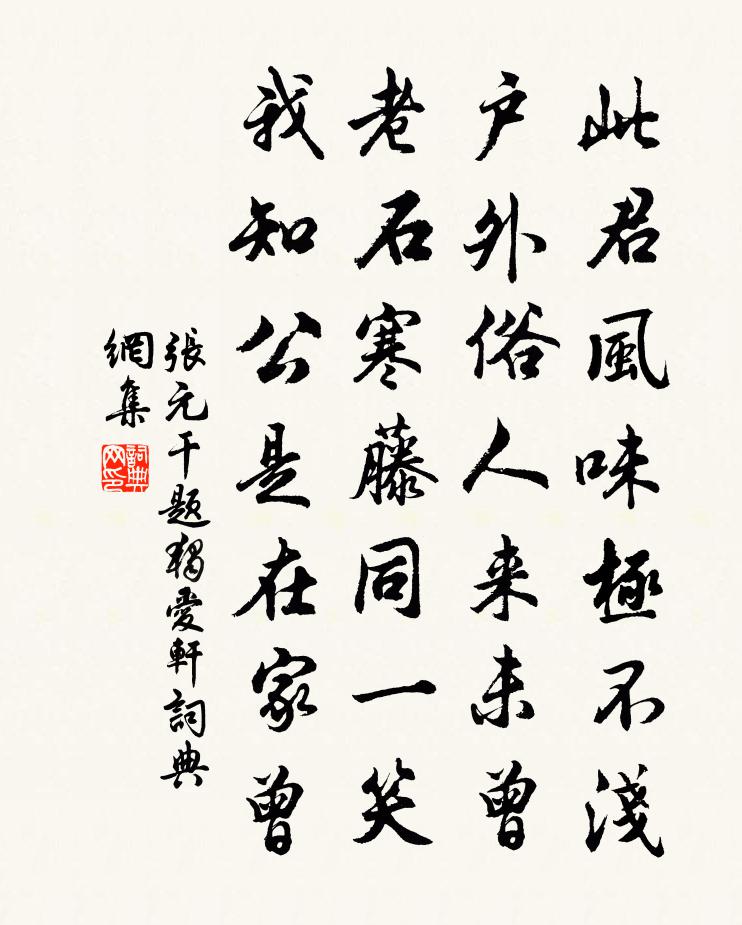 此君風味極不淺
户外俗人来未曾
老石寒藤同一笑
我知公是在家曾
張元干題獨愛軒詞典
網集
詞典
网印